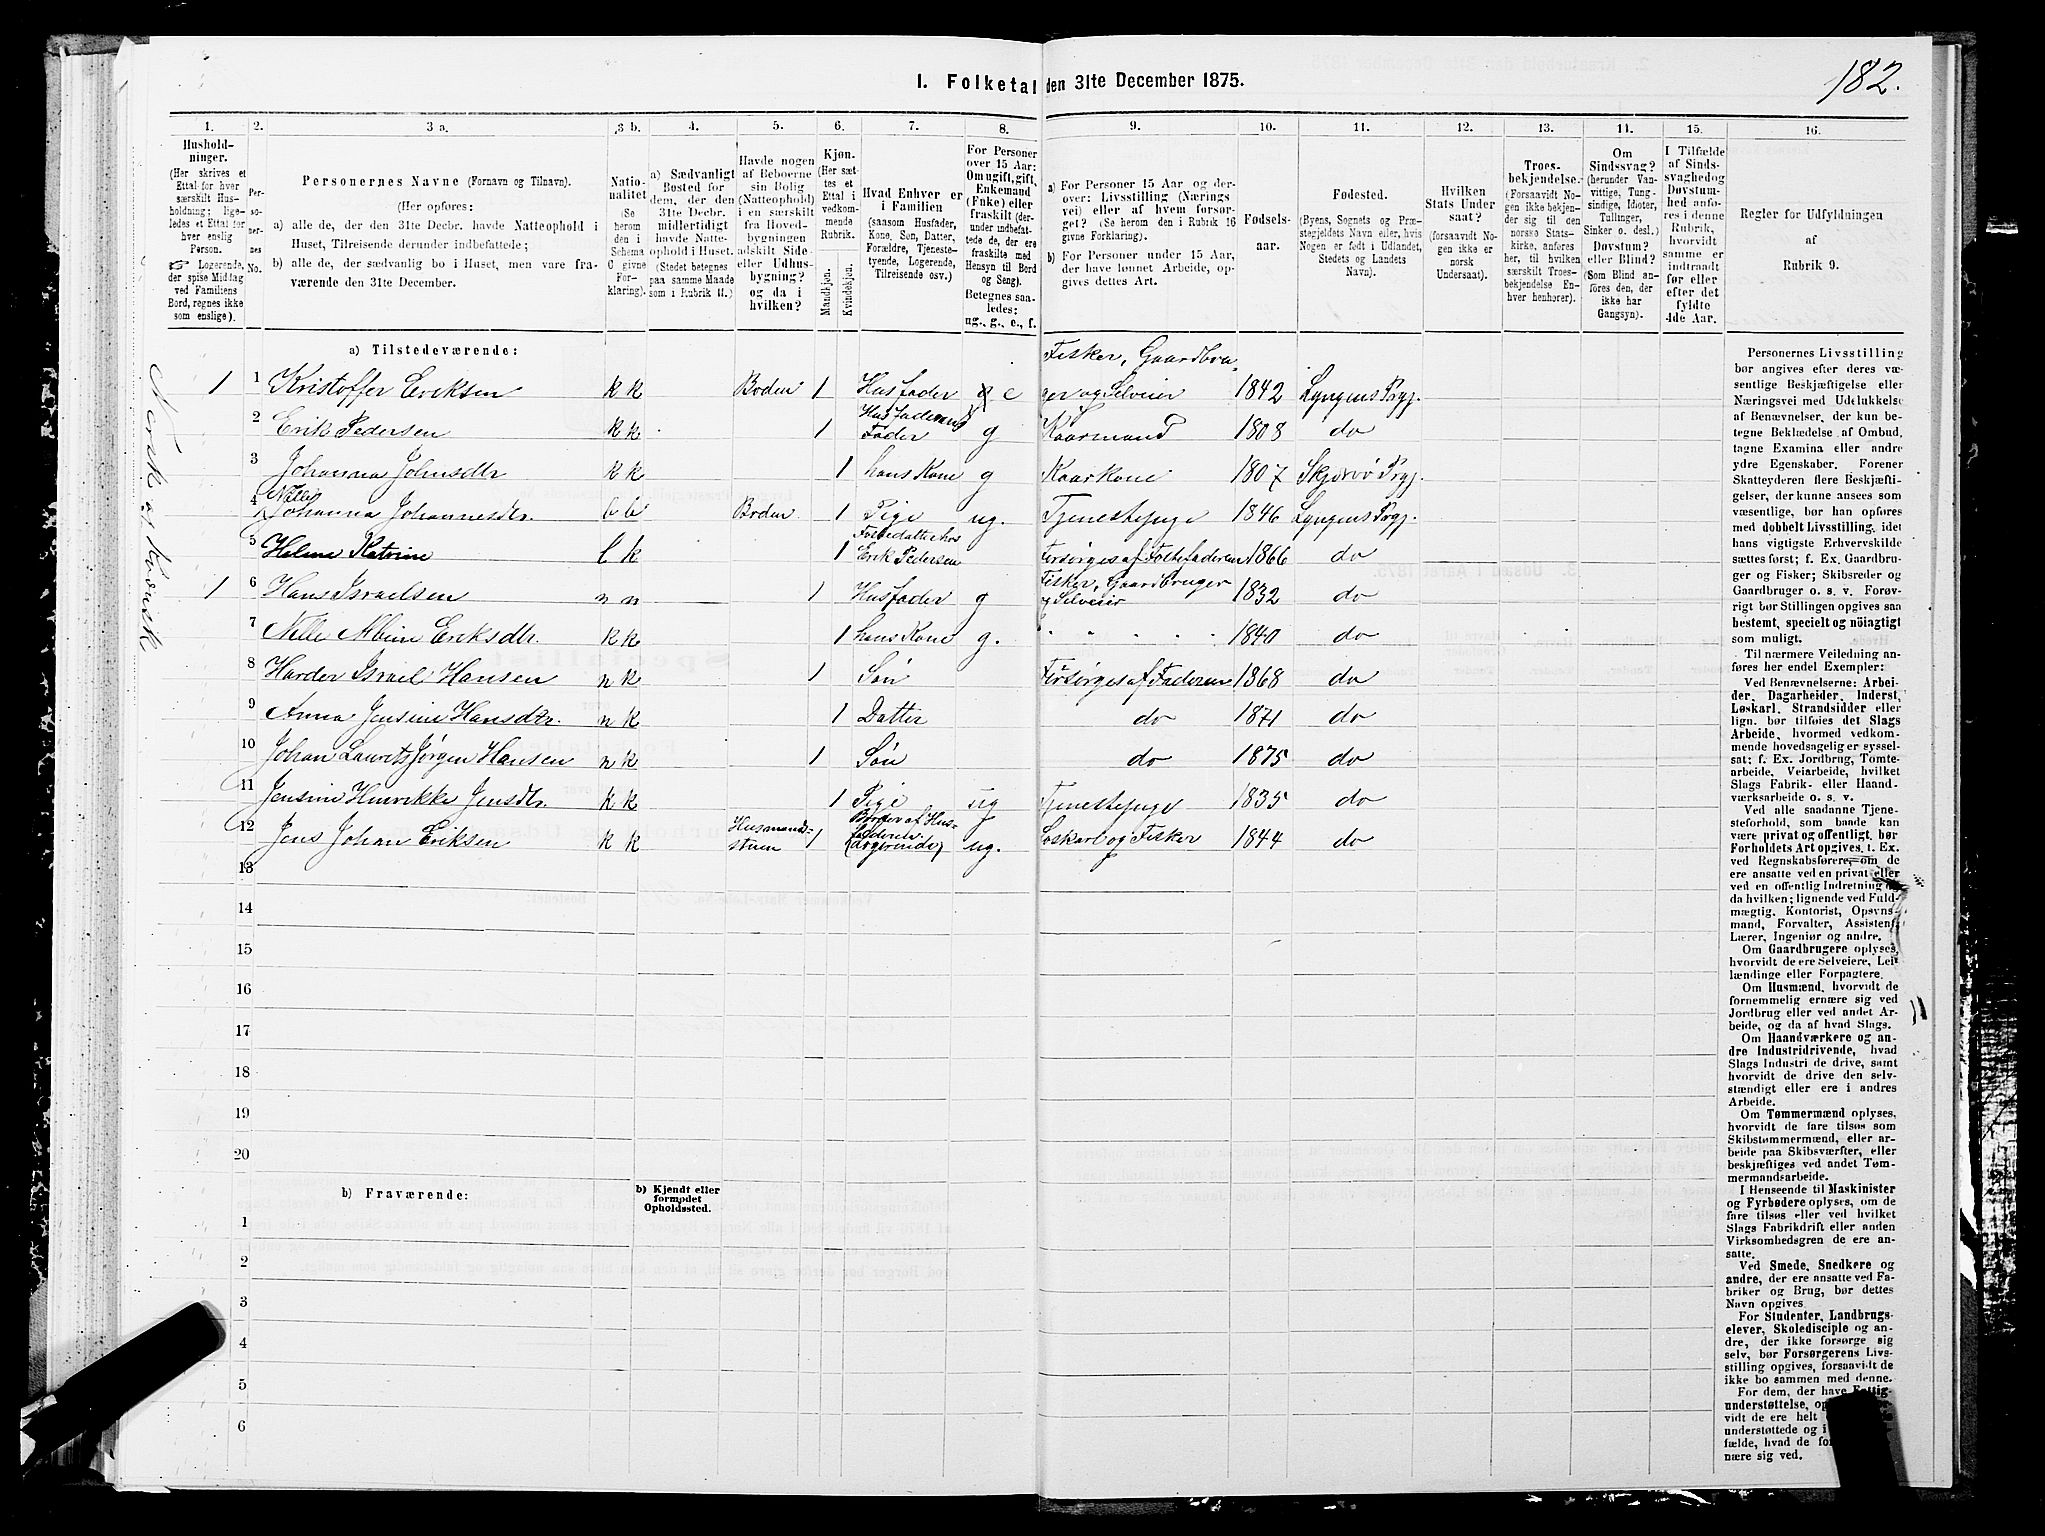 182.
I. Folketal den 31te December 1875.
1. 2. 3 a. 3 b. 4. 5. 6. 7. 8. 9. 10. 11. 12. 13. 14. 15. 16.
Hushold-
ninger.
(Her skrives et
Ettal for hver
særskilt Hus-
holdning; lige-
ledes et Ettal for
hver enslig
Person.
Logerende,
der spise Middag
ved Familiens
Bord, regnes ikke
som enslige).
Per-
so-
ner-
nes
No.
Personernes Navne (Fornavn og Tilnavn).
(Her opføres:
a) alle de, der den 31te Decbr. havde Natteophold i
Huset, Tilreisende derunder indbefattede;
b) alle de, der sædvanlig bo i Huset, men vare fra-
værende den 31te December.
Natio-
nalitet
(Se
herom
den i
Schema
C givne
For-
klaring).
a) Sædvanligt
Bosted for
dem, der den
31te Decbr.
midlertidigt
havde Natte-
ophold i Huset.
(Stedet betegnes
paa samme Maade
som i Rubrik 11.)
Havde nogen
af Beboerne
sin Bolig
(Natteophold)
i en særskilt
fra Hoved-
bygningen
adskilt Side-
eller Udhus-
bygning?
og da i
hvilken?
Kjøn.
(Her sæt-
tes et
Ettal i
vedkom-
mende
Rubrik.
Mandkjøn.
Kvindekjøn.
Hvad Enhver er
i Familien
(saasom Husfader,
Kone, Søn, Datter,
Forældre, Tjeneste-
tyende, Logerende,
Tilreisende osv.)
For Personer
over 15 Aar:
Om ugift, gift,
Enkemand
(Enke) eller
fraskilt (der-
under indbefat-
tede de, der ere
fraskilte med
Hensyn til Bord
og Seng).
Betegnes saa-
ledes:
ug., g., e., f.
a) For Personer 15 Aar og der-
over: Livsstilling (Nærings-
vei) eller af hvem forsør-
get? (Se herom den i Rubrik 16
givne Forklaring).
b) For Personer under 15 Aar,
der have lønnet Arbeide, op-
gives dettes Art.
Fødsels-
aar.
Fødested.
(Byens, Sognets og Præ-
stegjeldets Navn eller, hvis
Nogen er født i Udlandet,
Stedets og Landets
Navn).
Hvilken
Stats Under
saat?
(forsaavidt No-
gen ikke er
norsk
Undersaat).
Troes-
bekjendelse.
(Forsaavidt No-
gen ikke bekjen-
der sig til den
norske Stats-
kirke, anføres
her, til hvilken
særskilt Troes-
bekjendelse En-
hver henhører).
Om
Sindssvag?
(herunder Van-
vittige, Tung-
sindige, Idioter,
Tullinger,
Sinker o. desl.)
Døvstum?
eller Blind?
(Som Blind an-
føres den, der
ikke har
Gangsyn).
I Tilfælde
af Sinds-
svaghed og
Døvstum-
hed anfø-
res i denne
Rubrik,
hvorvidt
samme er
indtraadt
før eller
efter det
fyldte
4de Aar.
Regler for Udfyldningen
af
Rubrik 9.
a) Tilstedeværende:
1 1 Kristoffer Eriksen k k Boden 1 Husfader e Fisker, Gaardbru-
ger og Selveier 1842 Lyngens Prgj.
2 Erik Pedersen k k 1 Husfaderens
Fader g Kaarmand 1808 do
3 Johanna Johnsdtr k k 1 hans Kone g Kaarkone 1807 Skjervø Prgj.
4 Johanna Johannesdtr. b b Boden 1 Pige ug. Tjenestepige 1846 Lyngens Prgj.
5 Helene Katrine b k 1 Fosterdatter hos
Erik Pedersen Forsørges af Fosterfaderen 1866 do
1 6 Hans Israelsen n n 1 Husfader g Fisker, Gaardbruger
og Selveier 1832 do
7 Nelle Albine Eriksdtr. k k 1 hans Kone g. 1840 do
8 Harder Israel Hansen n k 1 Søn Forsørges af Faderen 1868 do
9 Anna Jensine Hansdtr. n k 1 Datter do 1871 do
10 Johan Laurits Jørgen Hansen n k 1 Søn do 1875 do
11 Jensine Henrikke Jensdtr. k k 1 Pige ug Tjenestepige 1835 do
12 Jens Johan Eriksen k k Husmands-
stuen 1 Broder af Hus-
faderen
(logerende) ug. Løskarl og Fisker 1844 do
13
14
15
16
17
18
19
20
b) Fraværende:
b) Kjendt eller
formodet
Opholdssted.
1
2
3
4
5
6
Norsk og Kvænsk
Personernes Livsstilling
bør angives efter deres væ-
sentlige Beskjæftigelse eller
Næringsvei med Udelukkelse
af Benævnelser, der kun be-
tegne Beklædelse af Ombud,
tagne Examina eller andre
ydre Egenskaber. Forener
Skatteyderen flere Beskjæfti-
gelser, der kunne ansees som
væsentlige, bør han opføres
med dobbelt Livsstilling, idet
hans vigtigste Erhvervskilde
sættes først; f. Ex. Gaardbru-
ger og Fisker; Skibsreder og
Gaardbruger o. s. v. Forøv-
rigt bør Stillingen opgives saa
bestemt, specielt og nöiagtigt
som muligt.
Til nærmere Veiledning an-
føres her endel Exempler:
Ved Benævnelserne: Arbei-
der, Dagarbeider, Inderst,
Løskarl, Strandsidder eller
lign. bør tilføies det Slags
Arbeide, hvormed vedkom-
mende hovedsagelig er syssel-
sat; f. Ex. Jordbrug, Tomte-
arbeide, Veiarbeide, hvilket
Slags Fabrik- eller Haand-
værksarbeide o. s. v.
Ved alle saadanne Tjene-
steforhold, som baade kan
være privat og offentligt, bør
Forholdets Art opgives, t. Ex.
ved Regnskabsførere, om de
ere ansatte ved en privat eller
ved en offentlig Indretning og
da hvilken; lignende ved Fuld-
mægtig, Kontorist, Opsyns-
mand, Forvalter, Assistent,
Lærer, Ingeniør og andre.
Om Gaardbrugere oplyses,
hvorvidt de ere Selveiere, Lei-
lændinge eller Forpagtere.
Om Husmænd, hvorvidt de
fornemmelig ernære sig ved
Jordbrug eller ved andet Ar-
beide, og da af hvad Slags.
Om Haandværkere og an-
dre Industridrivende, hvad
Slags Industri de drive, samt
hvorvidt de drive den selv-
stændigt eller ere i andres
Arbeide.
Om Tømmermænd oplyses,
hvorvidt de fare tilsøs som
Skibstømmermænd, eller ar-
beide paa Skibsværfter, eller
beskjæftiges ved andet Tøm-
mermandsarbeide.
I Henseende til Maskinister
og Fyrbødere oplyses, om de
fare tilsøs eller ved hvilket
Slags Fabrikdrift eller anden
Virksomhedsgren de ere an-
satte.
Ved Smede, Snedkere og
andre, der ere ansatte ved Fa-
briker og Brug, bør dettes
Navn opgives
For Studenter, Landbrugs-
elever, Skoledisciple og an-
dre, der ikke forsørge sig
selv, bør Forsørgerens Livs-
stilling opgives, forsaavidt de
ikke bo sammen med denne.
For dem, der have Fattig-
understøttelse, op
vidt de ere helt
understøttede og i
fælde, hvad de for
nære sig ved.